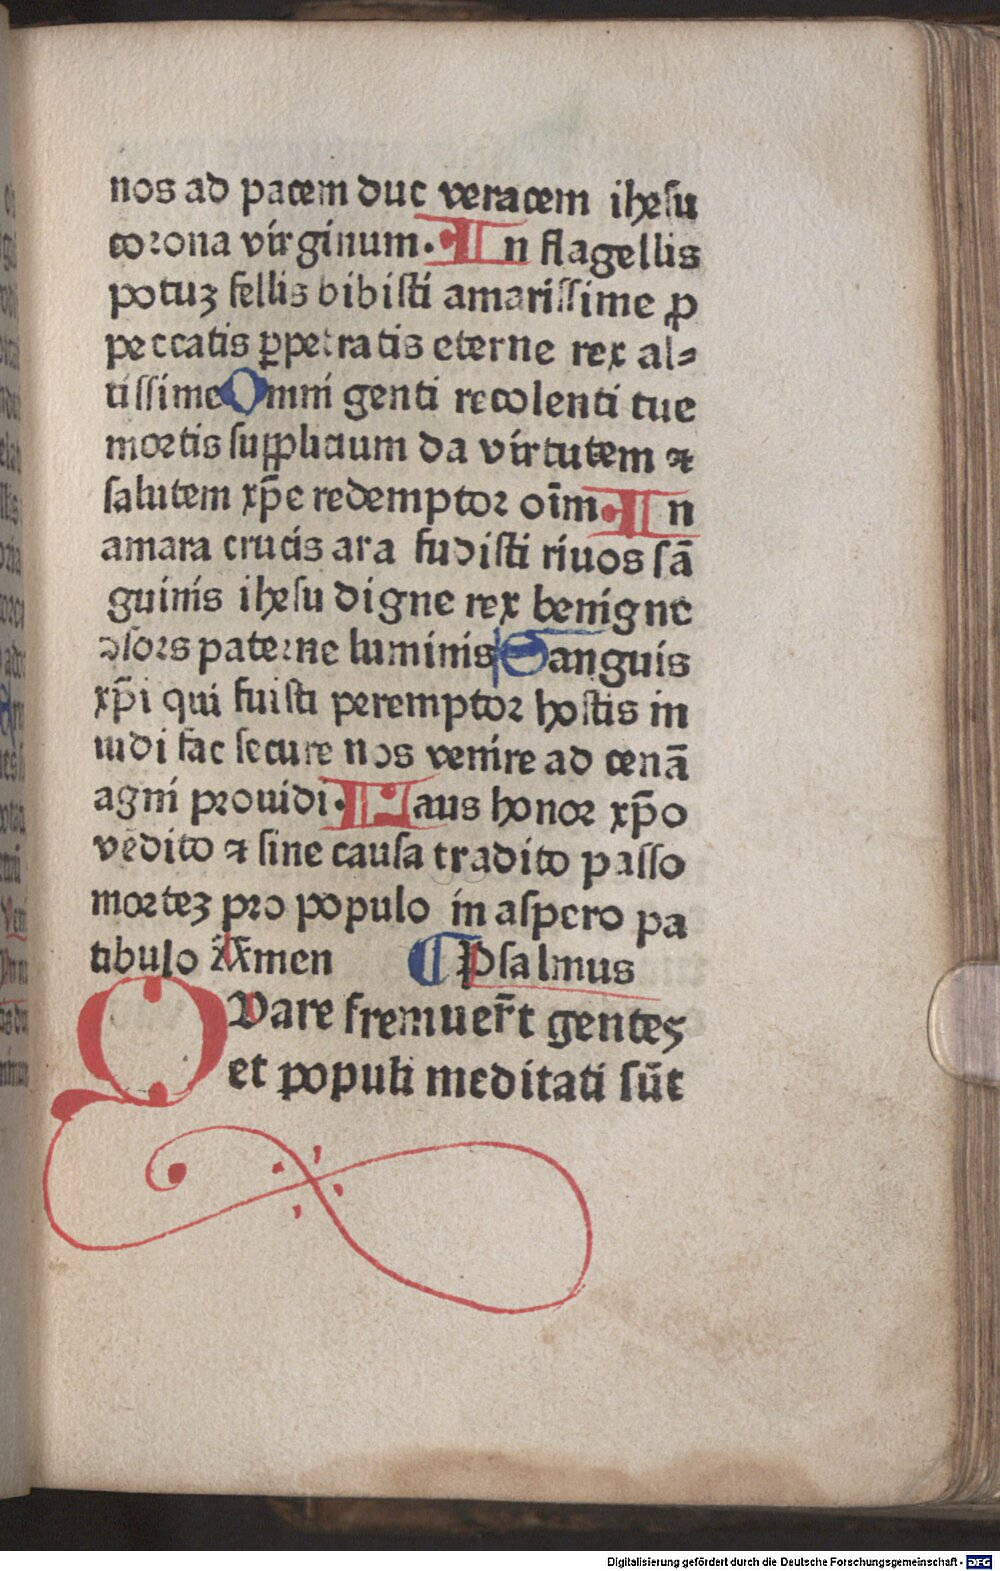 nos ad pacem duc veracem ihesu
corona virginum. In flagellis
potuꝫ fellis bibisti amarissime ꝓ
peccatis ꝑpetratis eterne rex al⸗
tissime Omni genti recolenti tue
mortis supplicium da virtutem ⁊
salutem xp̄e redemptor oīm In
amara crucis ara fudisti riuos sā
guinis ihesu digne rex benigne
ꝯsors paterne luminis Sanguis
xp̄i qui fuisti peremptor hostis in
uidi fac secure nos venire ad cenā
agni prouidi. Laus honor xp̄o
vēdito ⁊ sine causa tradito passo
morteꝫ pro populo in aspero pa
tibulo Amen ¶ Psalmus
QVare fremuer̄t gentes
et populi meditati sūt
Digitalisierung gefördert durch die Deutsche Forschungsgemeinschaft - DFG